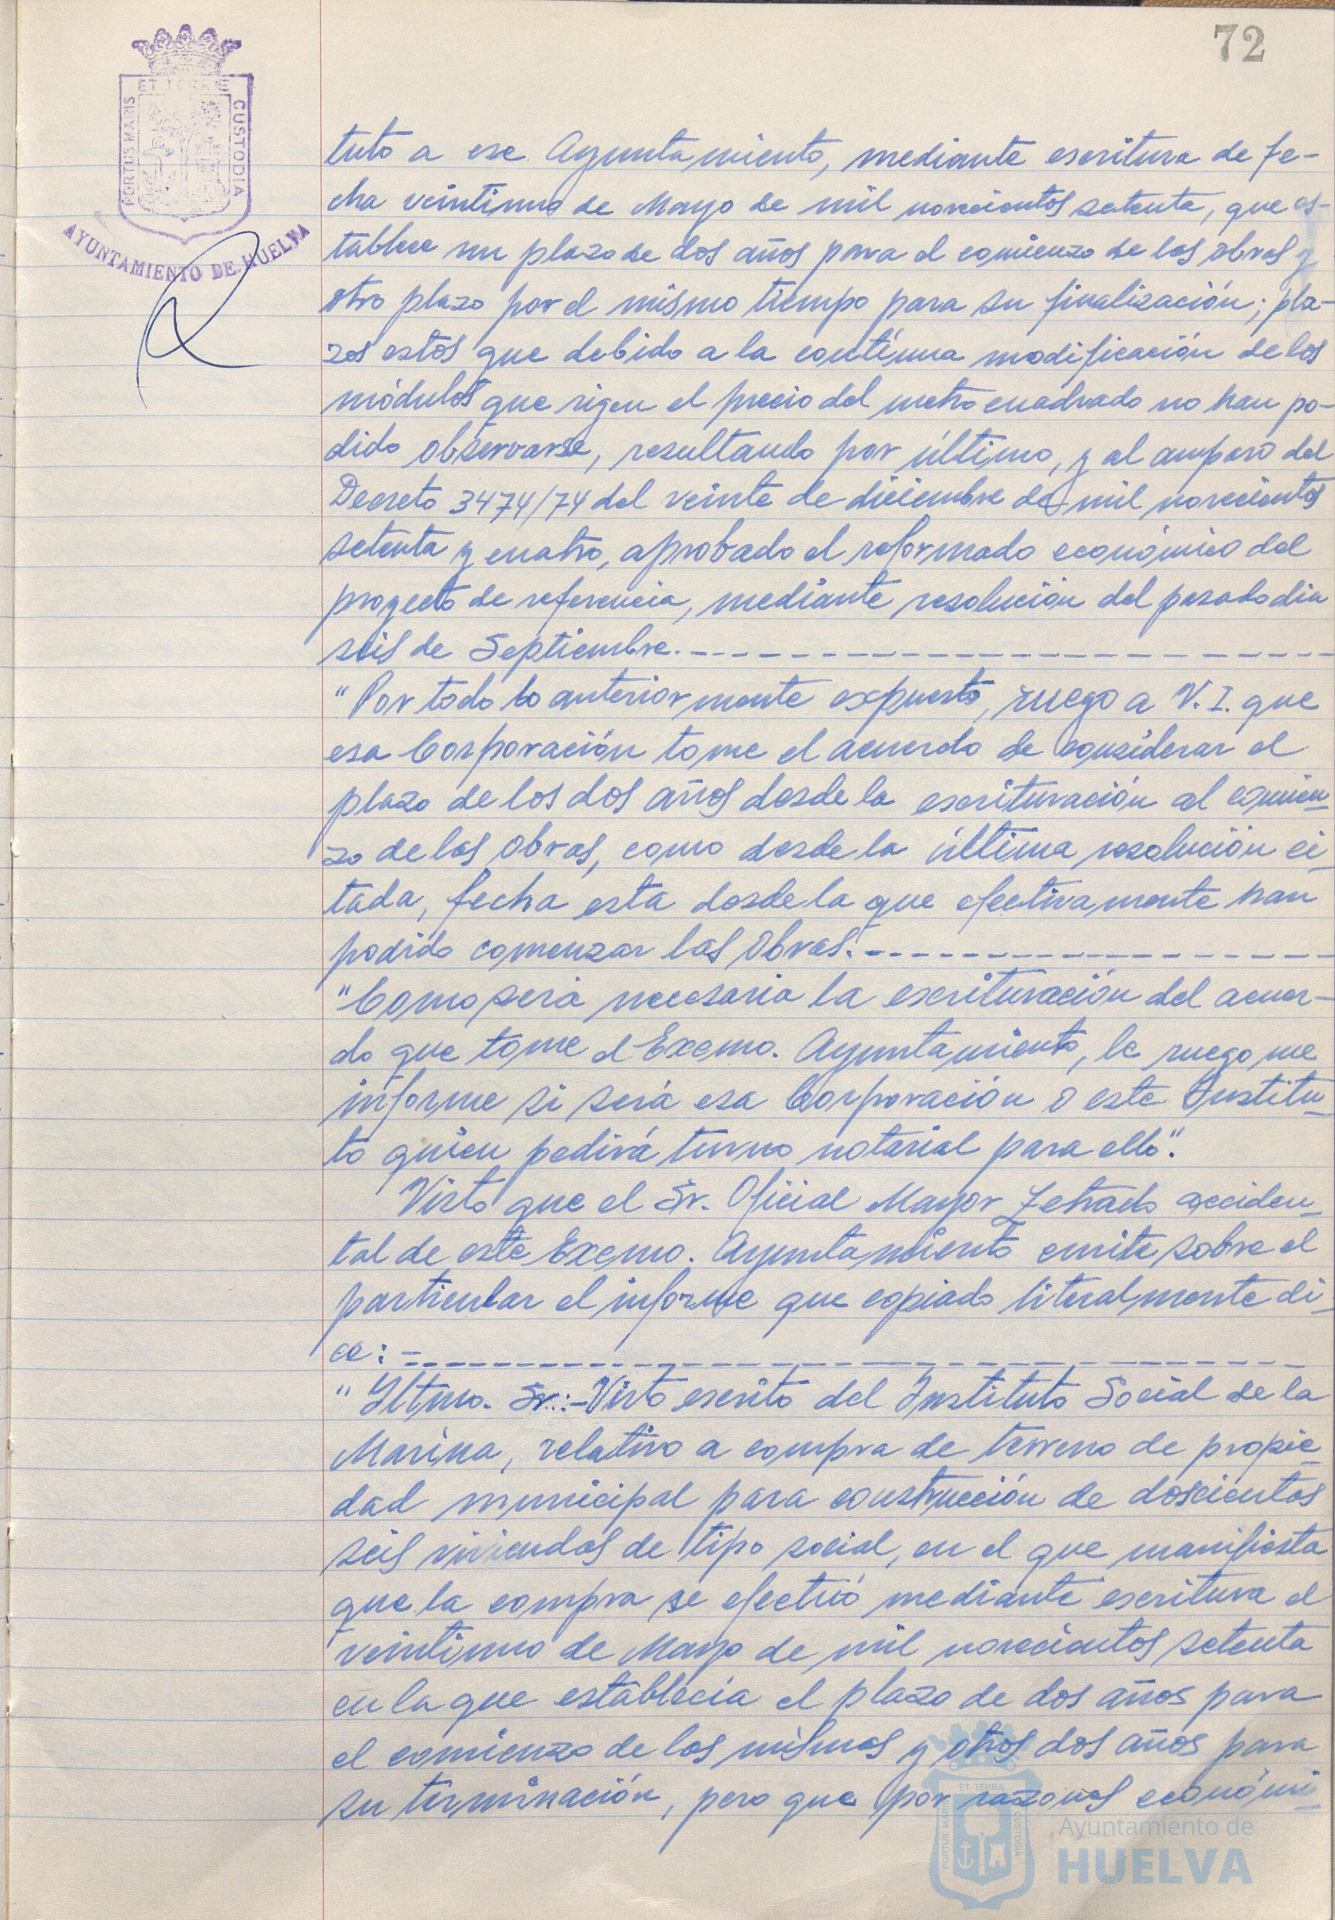 72
PORTUS MARIS ET TERRE CUSTODIA
AYUNTAMIENTO DE HUELVA
tuto a ese Ayuntamiento, mediante escritura de fe-
cha veintiuno de Mayo de mil novecientos setenta, que es-
tablece un plazo de dos años para el comienzo de las obras y
otro plazo por el mismo tiempo para su finalización; pla-
zos estos que debido a la contínua modificación de los
módulos que rigen el precio del metro cuadrado no han po-
dido observarse, resultando por último, y al amparo del
Decreto 3474/74 del veinte de diciembre de mil novecientos
setenta y cuatro, aprobado el reformado económico del
proyecto de referencia, mediante resolución del pasado dia
seis de Septiembre.
"Por todo lo anteriormente expuesto, ruego a V.I. que
esa Corporación tome el acuerdo de considerar el
plazo de los dos años desde la escrituración al comien-
zo de las obras, como desde la última resolución ci-
tada, fecha esta desde la que efectivamente han
podido comenzar las obras.
"Como será necesaria la escrituración del acuer-
do que tome el Excmo. Ayuntamiento, le ruego me
informe si será esa Corporación o este Institu-
to quien pedirá turno notarial para ello".
Visto que el Sr. Oficial Mayor Letrado acciden-
tal de este Excmo. Ayuntamiento emite sobre el
particular el informe que copiado literalmente di-
ce: -
"Iltmo. Sr.:- Visto escrito del Instituto Social de la
Marina, relativo a compra de terreno de propie-
dad municipal para construcción de doscientas
seis viviendas de tipo social, en el que manifiesta
que la compra se efectuó mediante escritura el
veintiuno de Mayo de mil novecientos setenta
en la que establecía el plazo de dos años para
el comienzo de las mismas y otros dos años para
su terminación, pero que por razones económi-
ET TERRA
PORTUS MARIS CUSTODIA
Ayuntamiento de
HUELVA